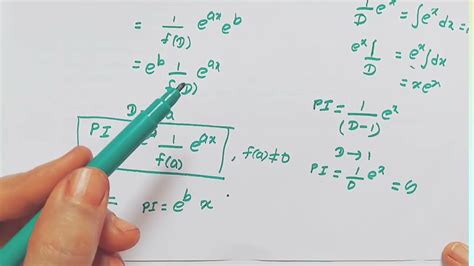 = 1/f(D) e^ax e^b
= e^b 1/f(D) e^ax
D a
PI 1/f(a) e^ax , f(a)≠0
= PI = e^b x
1/D e^x = ∫e^x
e^x ∫/D = e^x ∫dx
= xe^x
PI = 1/(D-1) e^x
D→1
PI = 1/0 e^x =